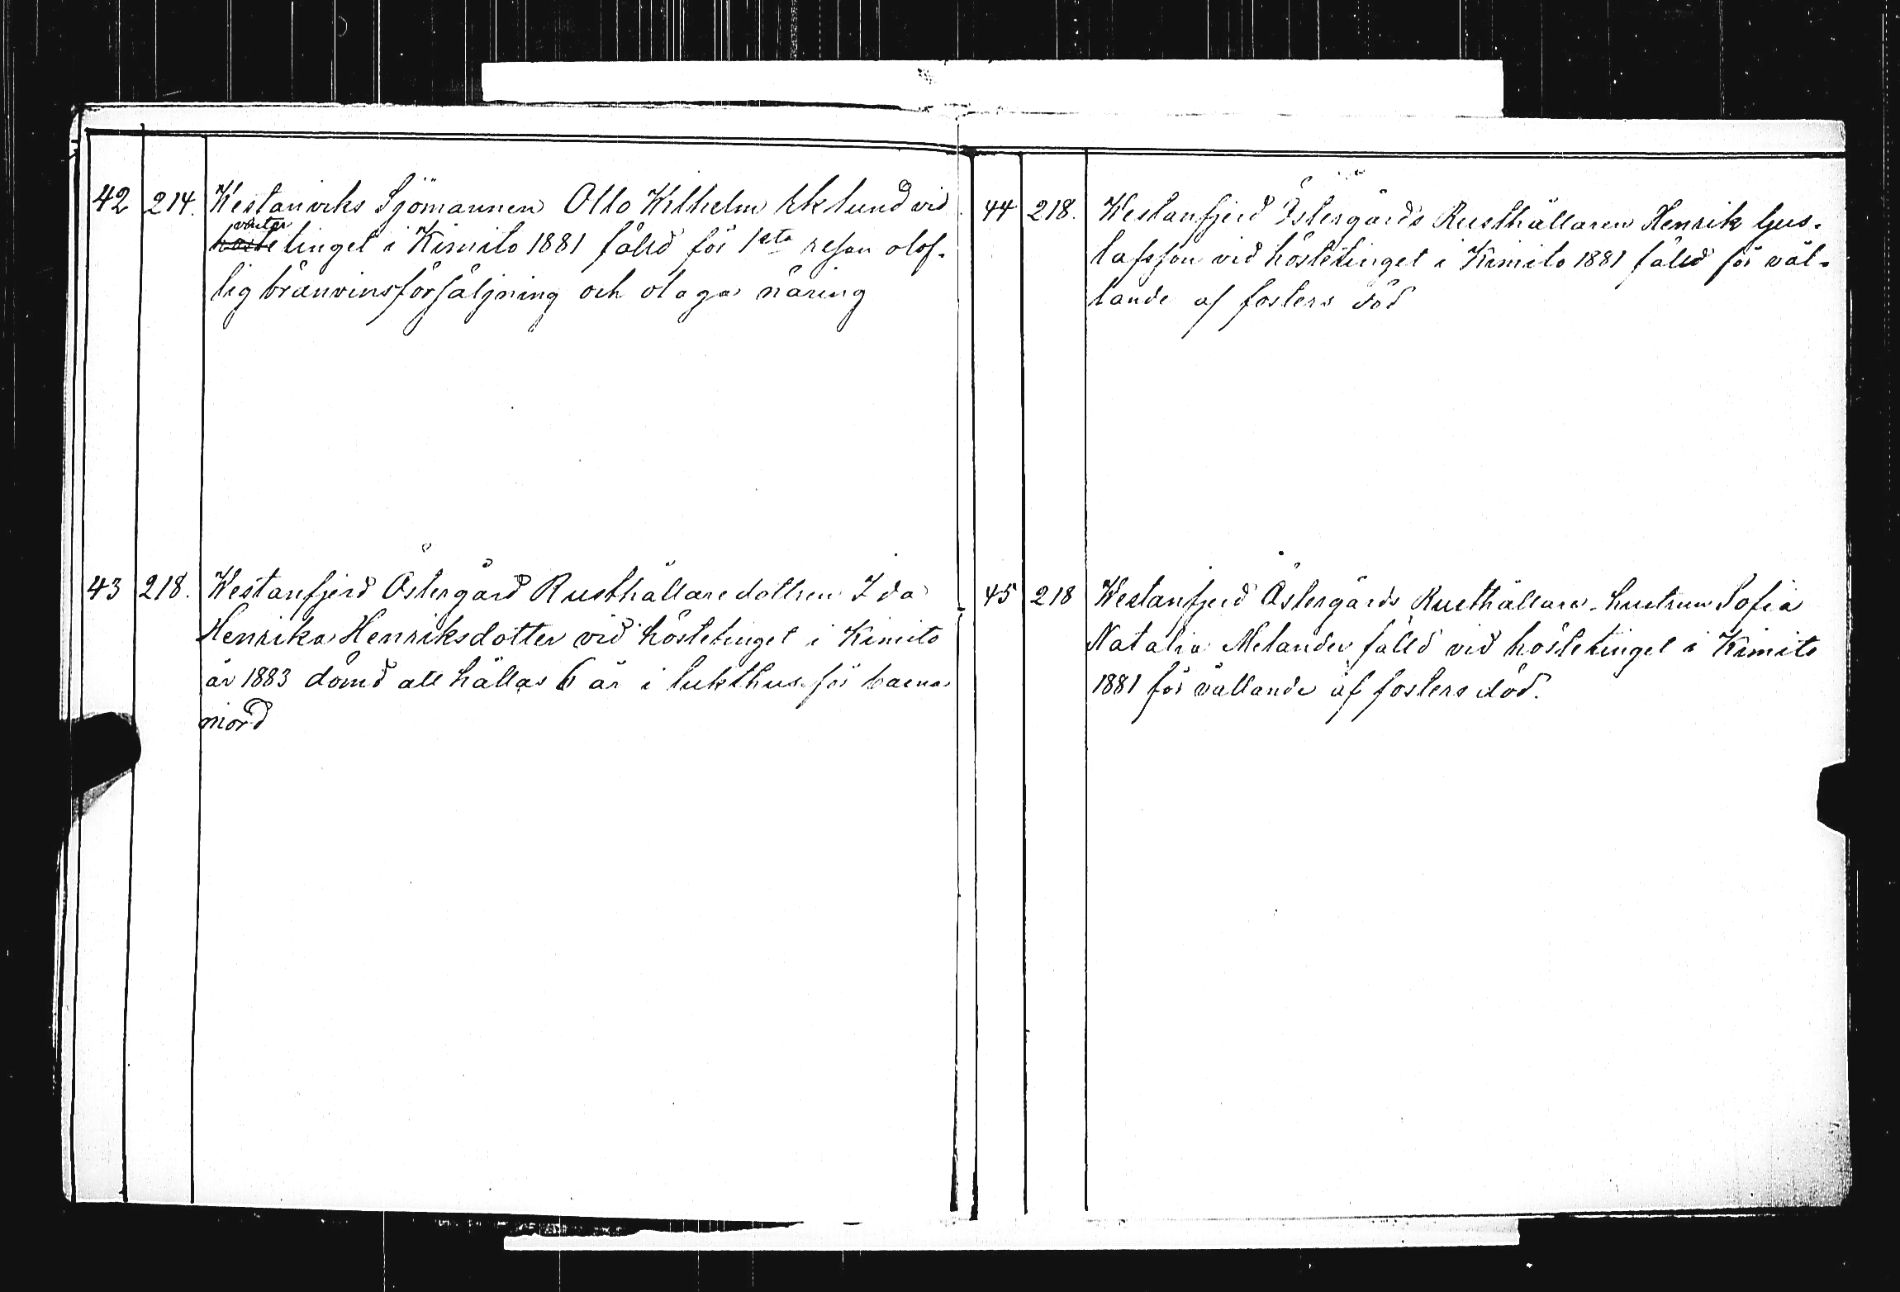 42 214. Westanviks Sjömannen Otto Wilhelm Eklund vid
vinter
höste tinget i Kimito 1881 fälld för 1sta resan olof-
lig bränvinsförsäljning och olaga näring
43 218. Westanfjerd Östergård Rusthållaredottren Ida
Henrika Henriksdotter vid höstetinget i Kimito
år 1883 dömd att hållas 6 år i tukthus för barna
mord
44 218. Westanfjerd Östergårds Rusthållaren Henrik Gus-
tafsson vid höstetinget i Kimito 1881 fälld för vål-
lande af fosters död
45 218 Westanfjerd Östergårds Rusthållare hustrun Sofia
Natalia Melander fälld vid höstetinget i Kimito
1881 för vållande af fosters död.